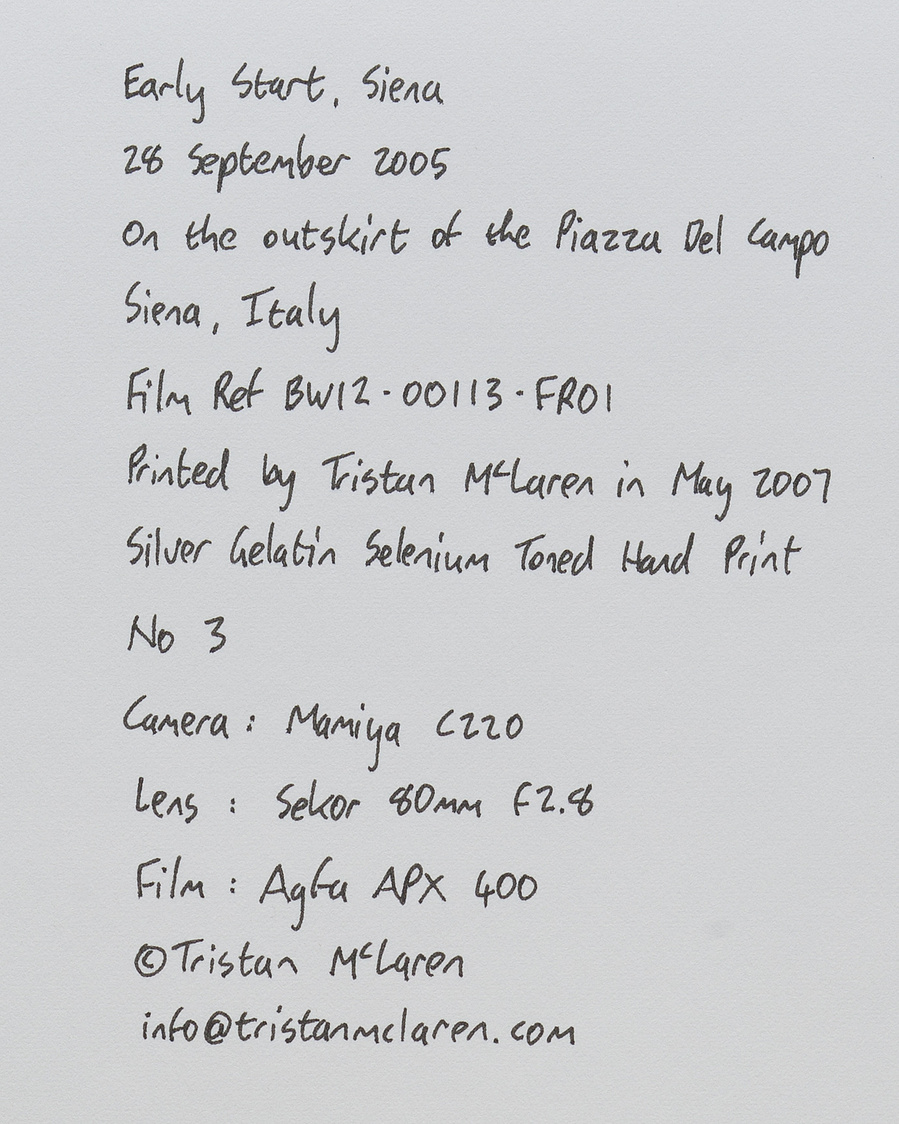 Early Start, Siena
28 September 2005
On the outskirt of the Piazza Del Campo
Siena, Italy
Film Ref BW12-00113-FR01
Printed by Tristan McLaren in May 2007
Silver Gelatin Selenium Toned Hand Print
No 3
Camera : Mamiya C220
Lens : Sekor 80mm f2.8
Film : Agfa APX 400
©Tristan McLaren
info@tristanmclaren.com